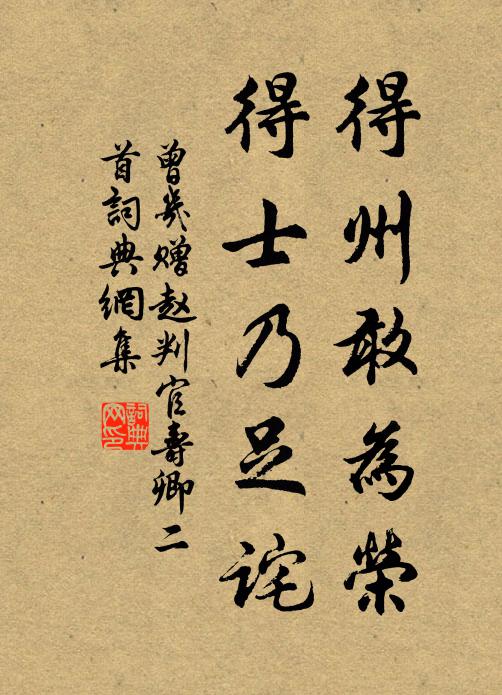 得州敢為榮
得士乃足詫
曾幾贈赵判官壽卿二
首詞典網集
詞典
网印